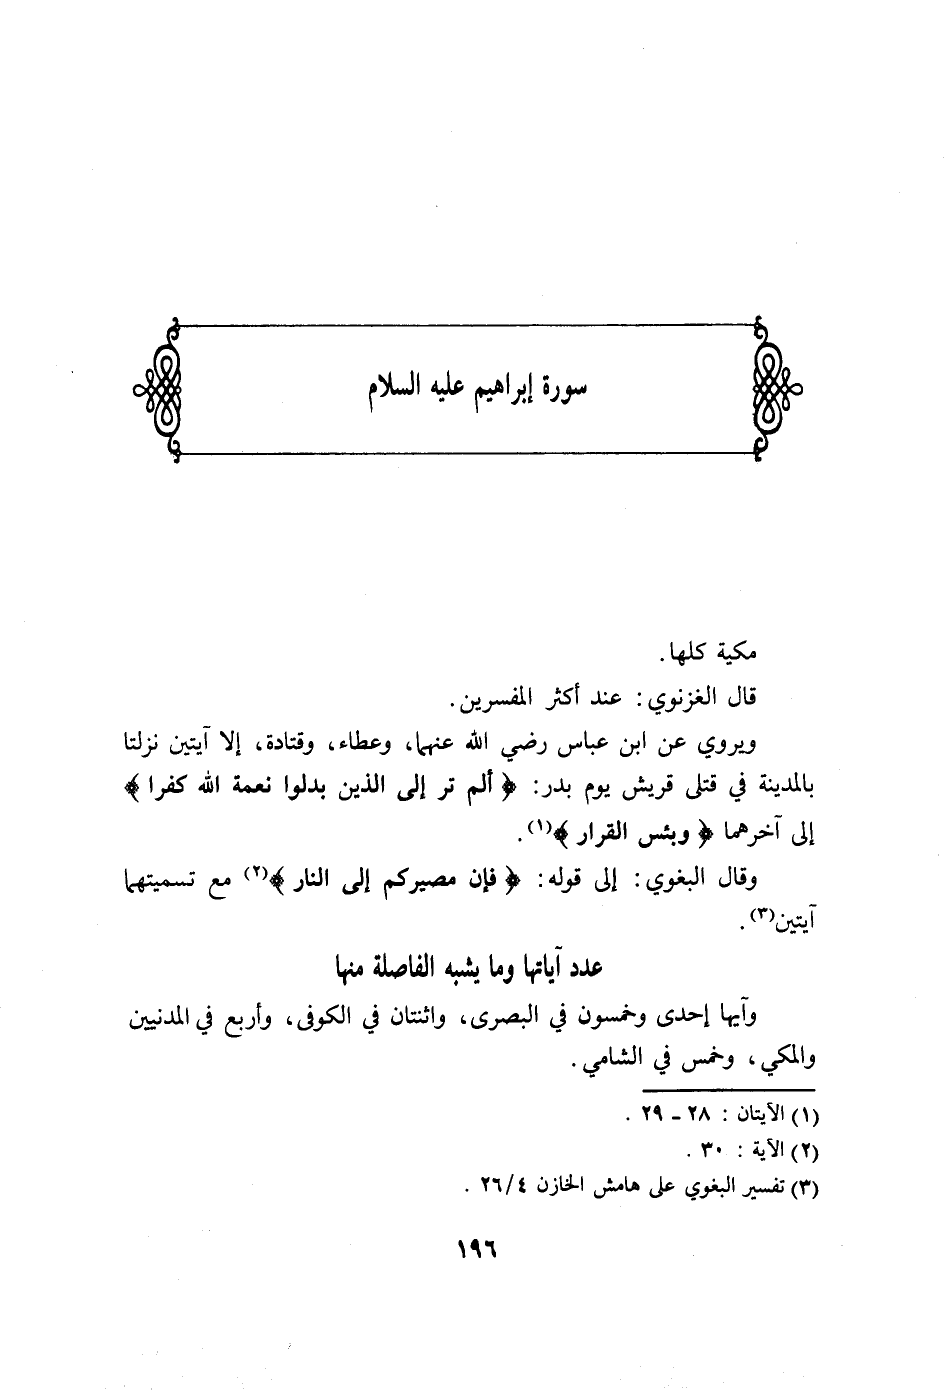 سورة إبراهيم عليه السلام
مكية كلها.
قال الغزنوي: عند أكثر المفسرين.
ويروي عن ابن عباس رضي الله عنهما، وعطاء، وقتادة، إلا آيتين نزلتا
بالمدينة في قتلى قريش يوم بدر: ﴿ألم تر إلى الذين بدلوا نعمة الله كفرا﴾
إلى آخرهما ﴿وبئس القرار﴾(١).
وقال البغوي: إلى قوله: ﴿فإن مصيركم إلى النار﴾(٢) مع تسميتهما
آيتين(٣).
عدد آياتها وما يشبه الفاصلة منها
وآيها إحدى وخمسون في البصرى، واثنتان في الكوفى، وأربع في المدنيين
والمكي، وخمس في الشامي.
(١) الآيتان : ٢٨ ـ ٢٩ .
(٢) الآية : ٣٠ .
(٣) تفسير البغوي على هامش الخازن ٢٦/٤ .
١٩٦